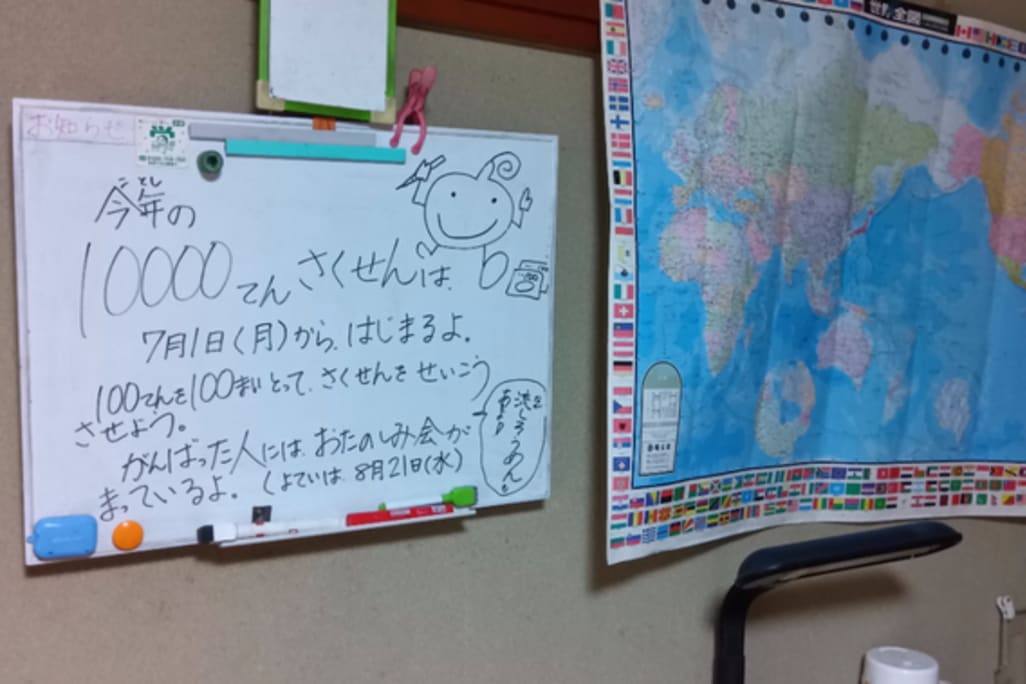 お知らせ
今年の
ことし
10000てんさくせんは
7月1日(月)から、はじまるよ。
100てんを100まいとって、さくせんを せいこう
させよう。
がんばった人には、おたのしみ会が
まっているよ。(よていは、8月21日(水)
流しそうめん
世界全図